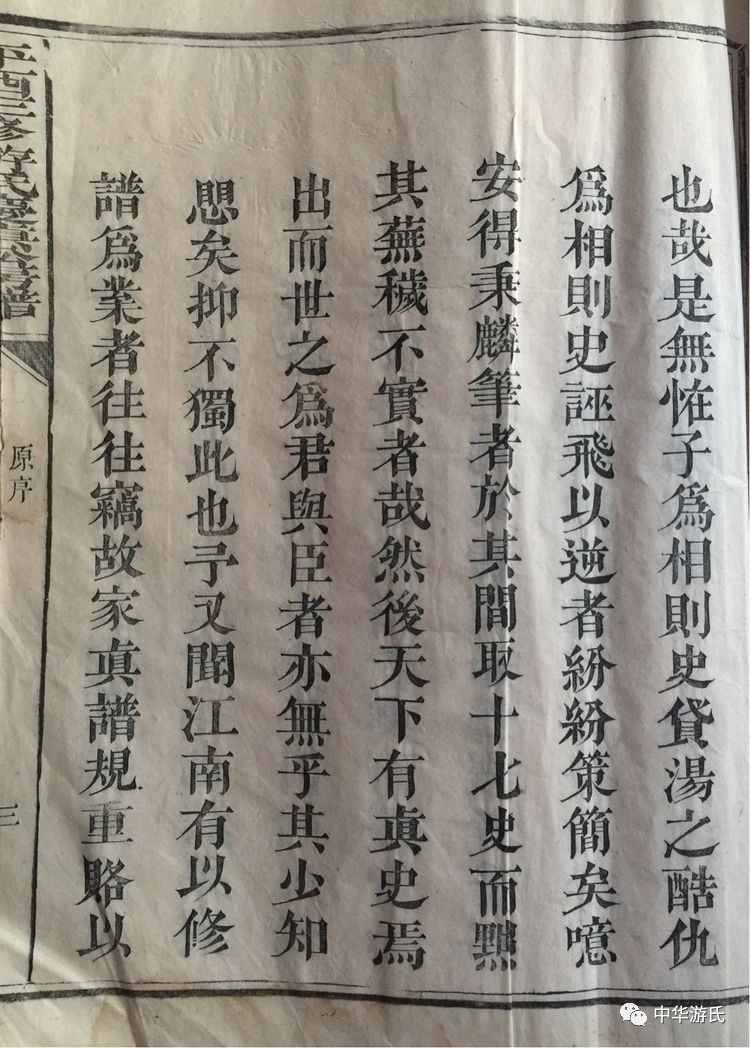 也哉是無恠子爲相則史貸湯之酷仇
爲相則史誣飛以逆者紛紛策簡矣噫
安得秉麟筆者於其間取十七史而黜
其蕪穢不實者哉然後天下有眞史焉
出而世之爲君與臣者亦無乎其少知
愳矣抑不獨此也予又聞江南有以修
譜爲業者往往竊故家眞譜規重賂以
原序
三
中华游氏